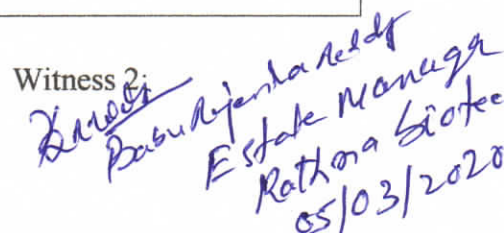 Witness 2:
Babu Rajendra Reddy
Estate Manager
Rathna Biotec
05/03/2020